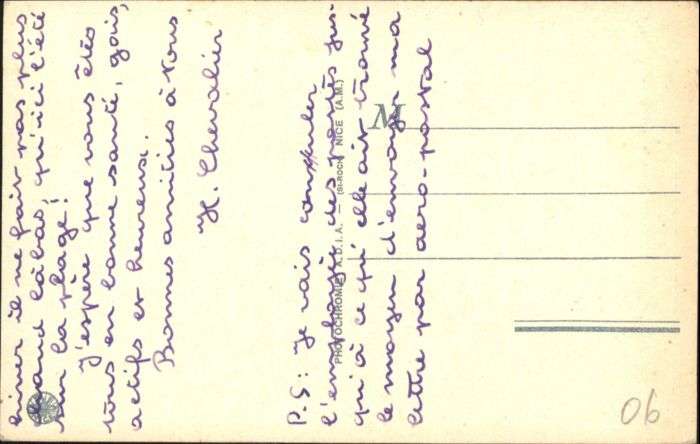 hiver il ne fait pas plus
chaud là bas, qu'ici l'été
sur la plage!
J'espère que vous êtes
tous en bonne santé, gais,
actifs et heureux.
Bonnes amitiés à vous
H. Chevalier
P.S: Je vais consulter
l'employée des postes jus-
qu'à ce qu'elle ait trouvé
le moyen d'envoyer ma
lettre par aero-postal
PHOTOCHROMIE A.D.I.A. — (St-ROCH) NICE (A.M.)
M
06